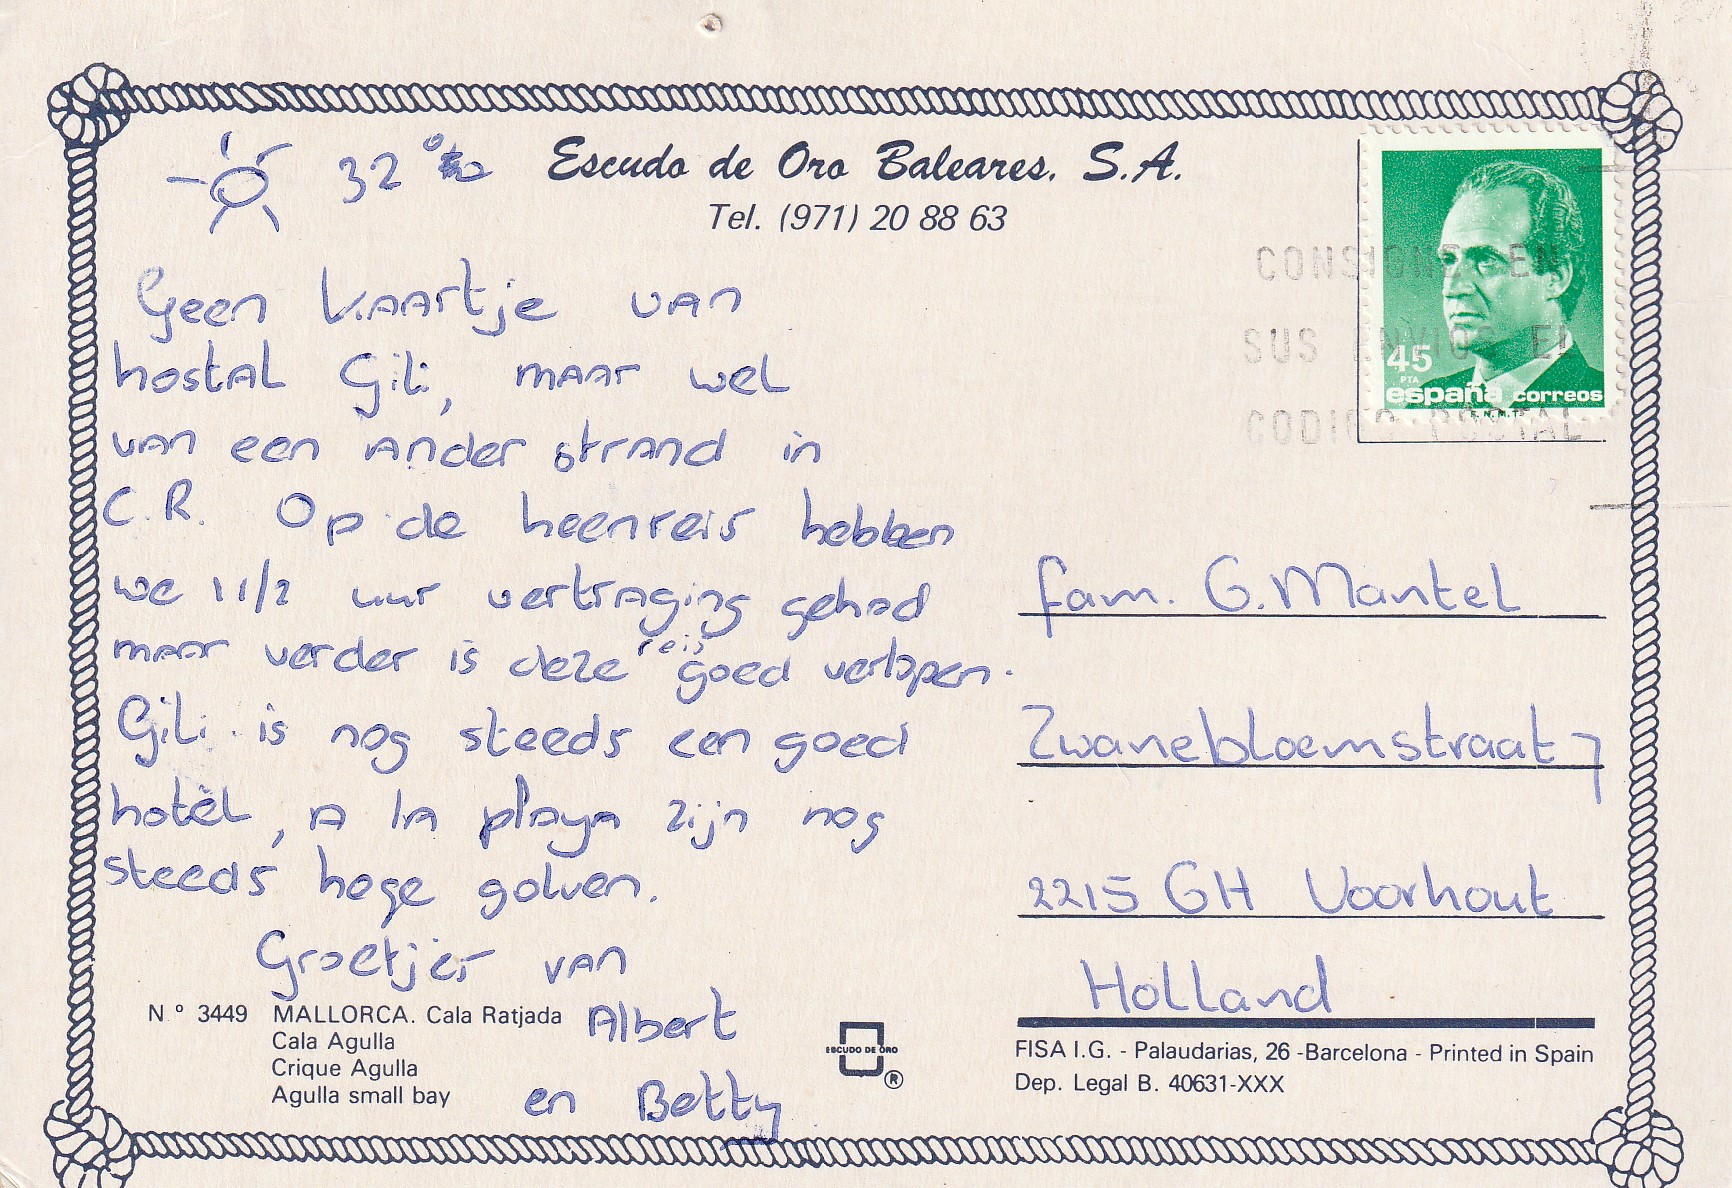 32°
Escudo de Oro Baleares, S.A.
Tel. (971) 20 88 63
Geen kaartje van
hostal Gili, maar wel
van een ander strand in
C.R. Op de heenreis hebben
we 11/2 uur vertraging gehad
maar verder is deze reis goed verlopen.
Gili is nog steeds een goed
hotel, a la playa zijn nog
steeds hoge golven.
Groetjes van
Albert
en Betty
Nº 3449 MALLORCA. Cala Ratjada
Cala Agulla
Crique Agulla
Agulla small bay
ESCUDO DE ORO
®
45
PTA
españa correos
F.N.M.T.
CONSIGNE EN
SUS ENVIOS EL
CODIGO POSTAL
fam. G. Mantel
Zwanebloemstraat 7
2215 GH Voorhout
Holland
FISA I.G. - Palaudarias, 26 -Barcelona - Printed in Spain
Dep. Legal B. 40631-XXX